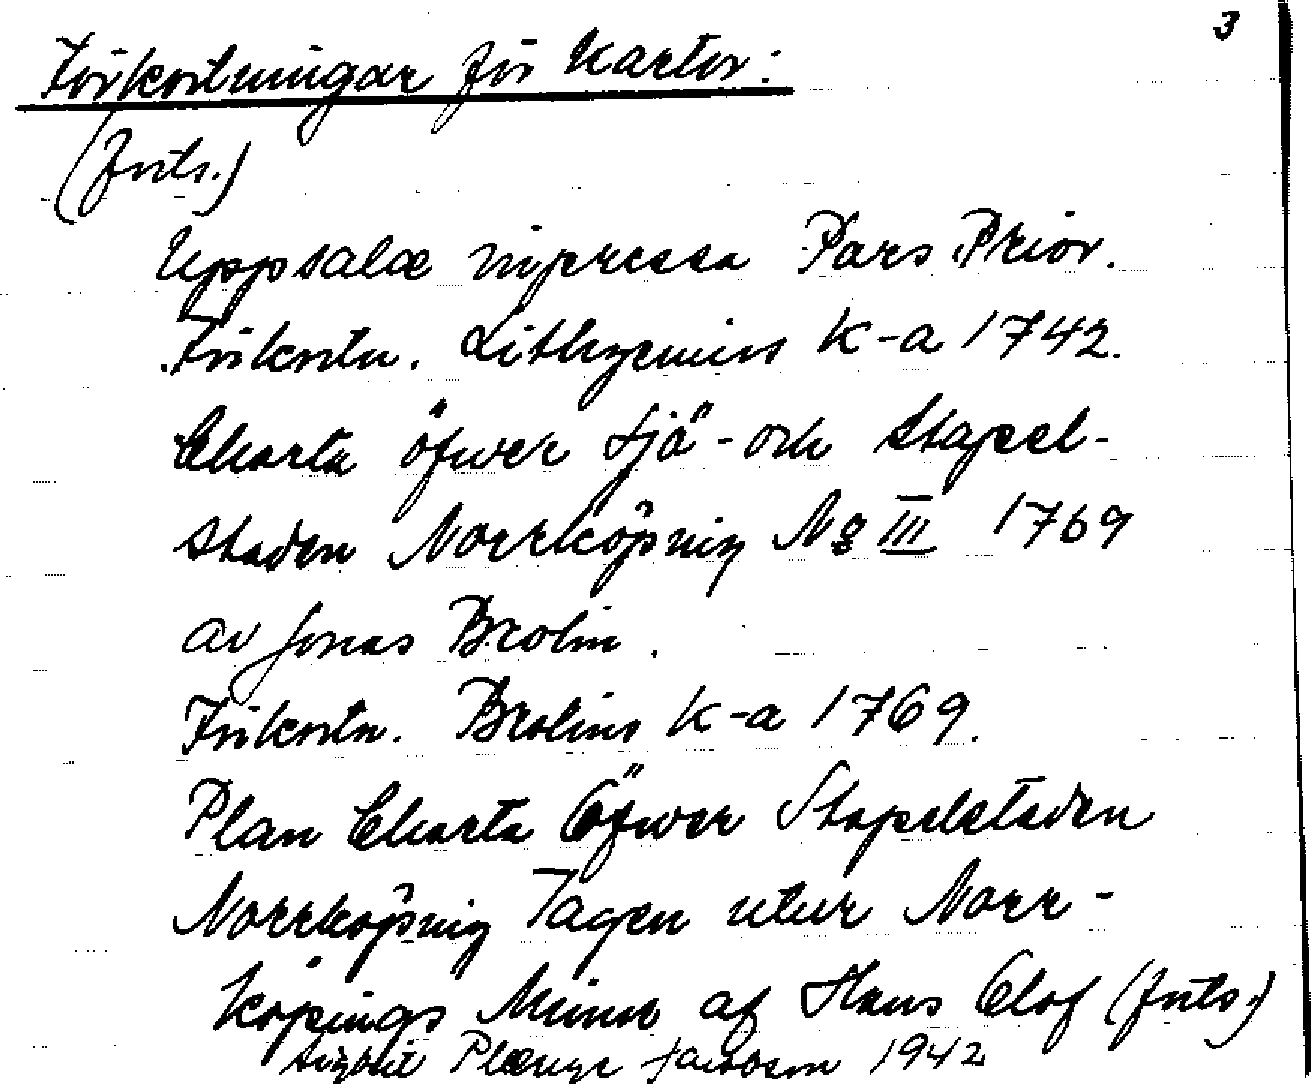 3
Förkortningar för Kartor:
(forts.)
Uppsalæ impressa Pars Prior.
Förkortn. Lithzenius K-a 1742.
Charta öfwer Sjö- och Stapel-
staden Norrköping No III 1769
av Jonas Brolin.
Förkortn. Brolins K-a 1769.
Plan Charta Öfwer Stapelstaden
Norrköping Tagen utur Norr-
köpings Minne af Hans Olof (forts.)
Plænge Jacobson 1942